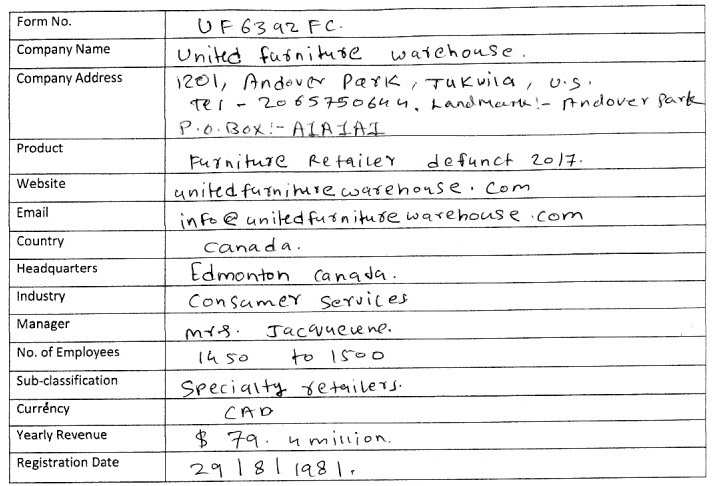 Form No. UF6392FC.
Company Name United furniture warehouse.
Company Address 1201, Andover Park, Tukvila, U.S.
Tel - 2065750644, Landmark:- Andover Park
P.O. Box:- A1A1A1
Product Furniture Retailer defunct 2017.
Website unitedfurniturewarehouse.com
Email info@unitedfurniturewarehouse.com
Country Canada.
Headquarters Edmonton Canada.
Industry Consumer Services
Manager Mrs. Jacquelene.
No. of Employees 1450 to 1500
Sub-classification Specialty retailers.
Currency CAD
Yearly Revenue $ 79.4 million.
Registration Date 29/8/1981.